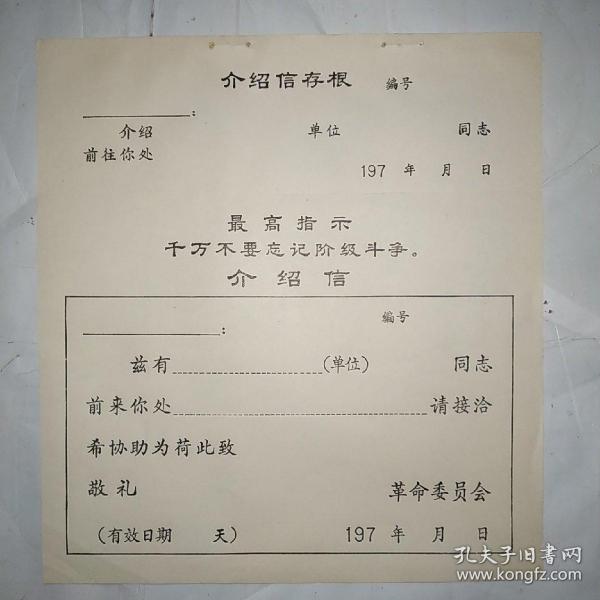 介绍信存根 编号
：
介绍 单位 同志
前往你处
197 年 月 日
最高指示
千万不要忘记阶级斗争。
介绍信
： 编号
兹有 (单位) 同志
前来你处 请接洽
希协助为荷此致
敬礼 革命委员会
(有效日期 天) 197 年 月 日
孔夫子旧书网
www.kongfz.com